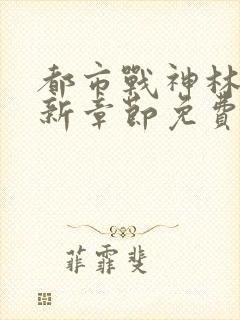 都市戰神林
新章節免費
菲霏斐